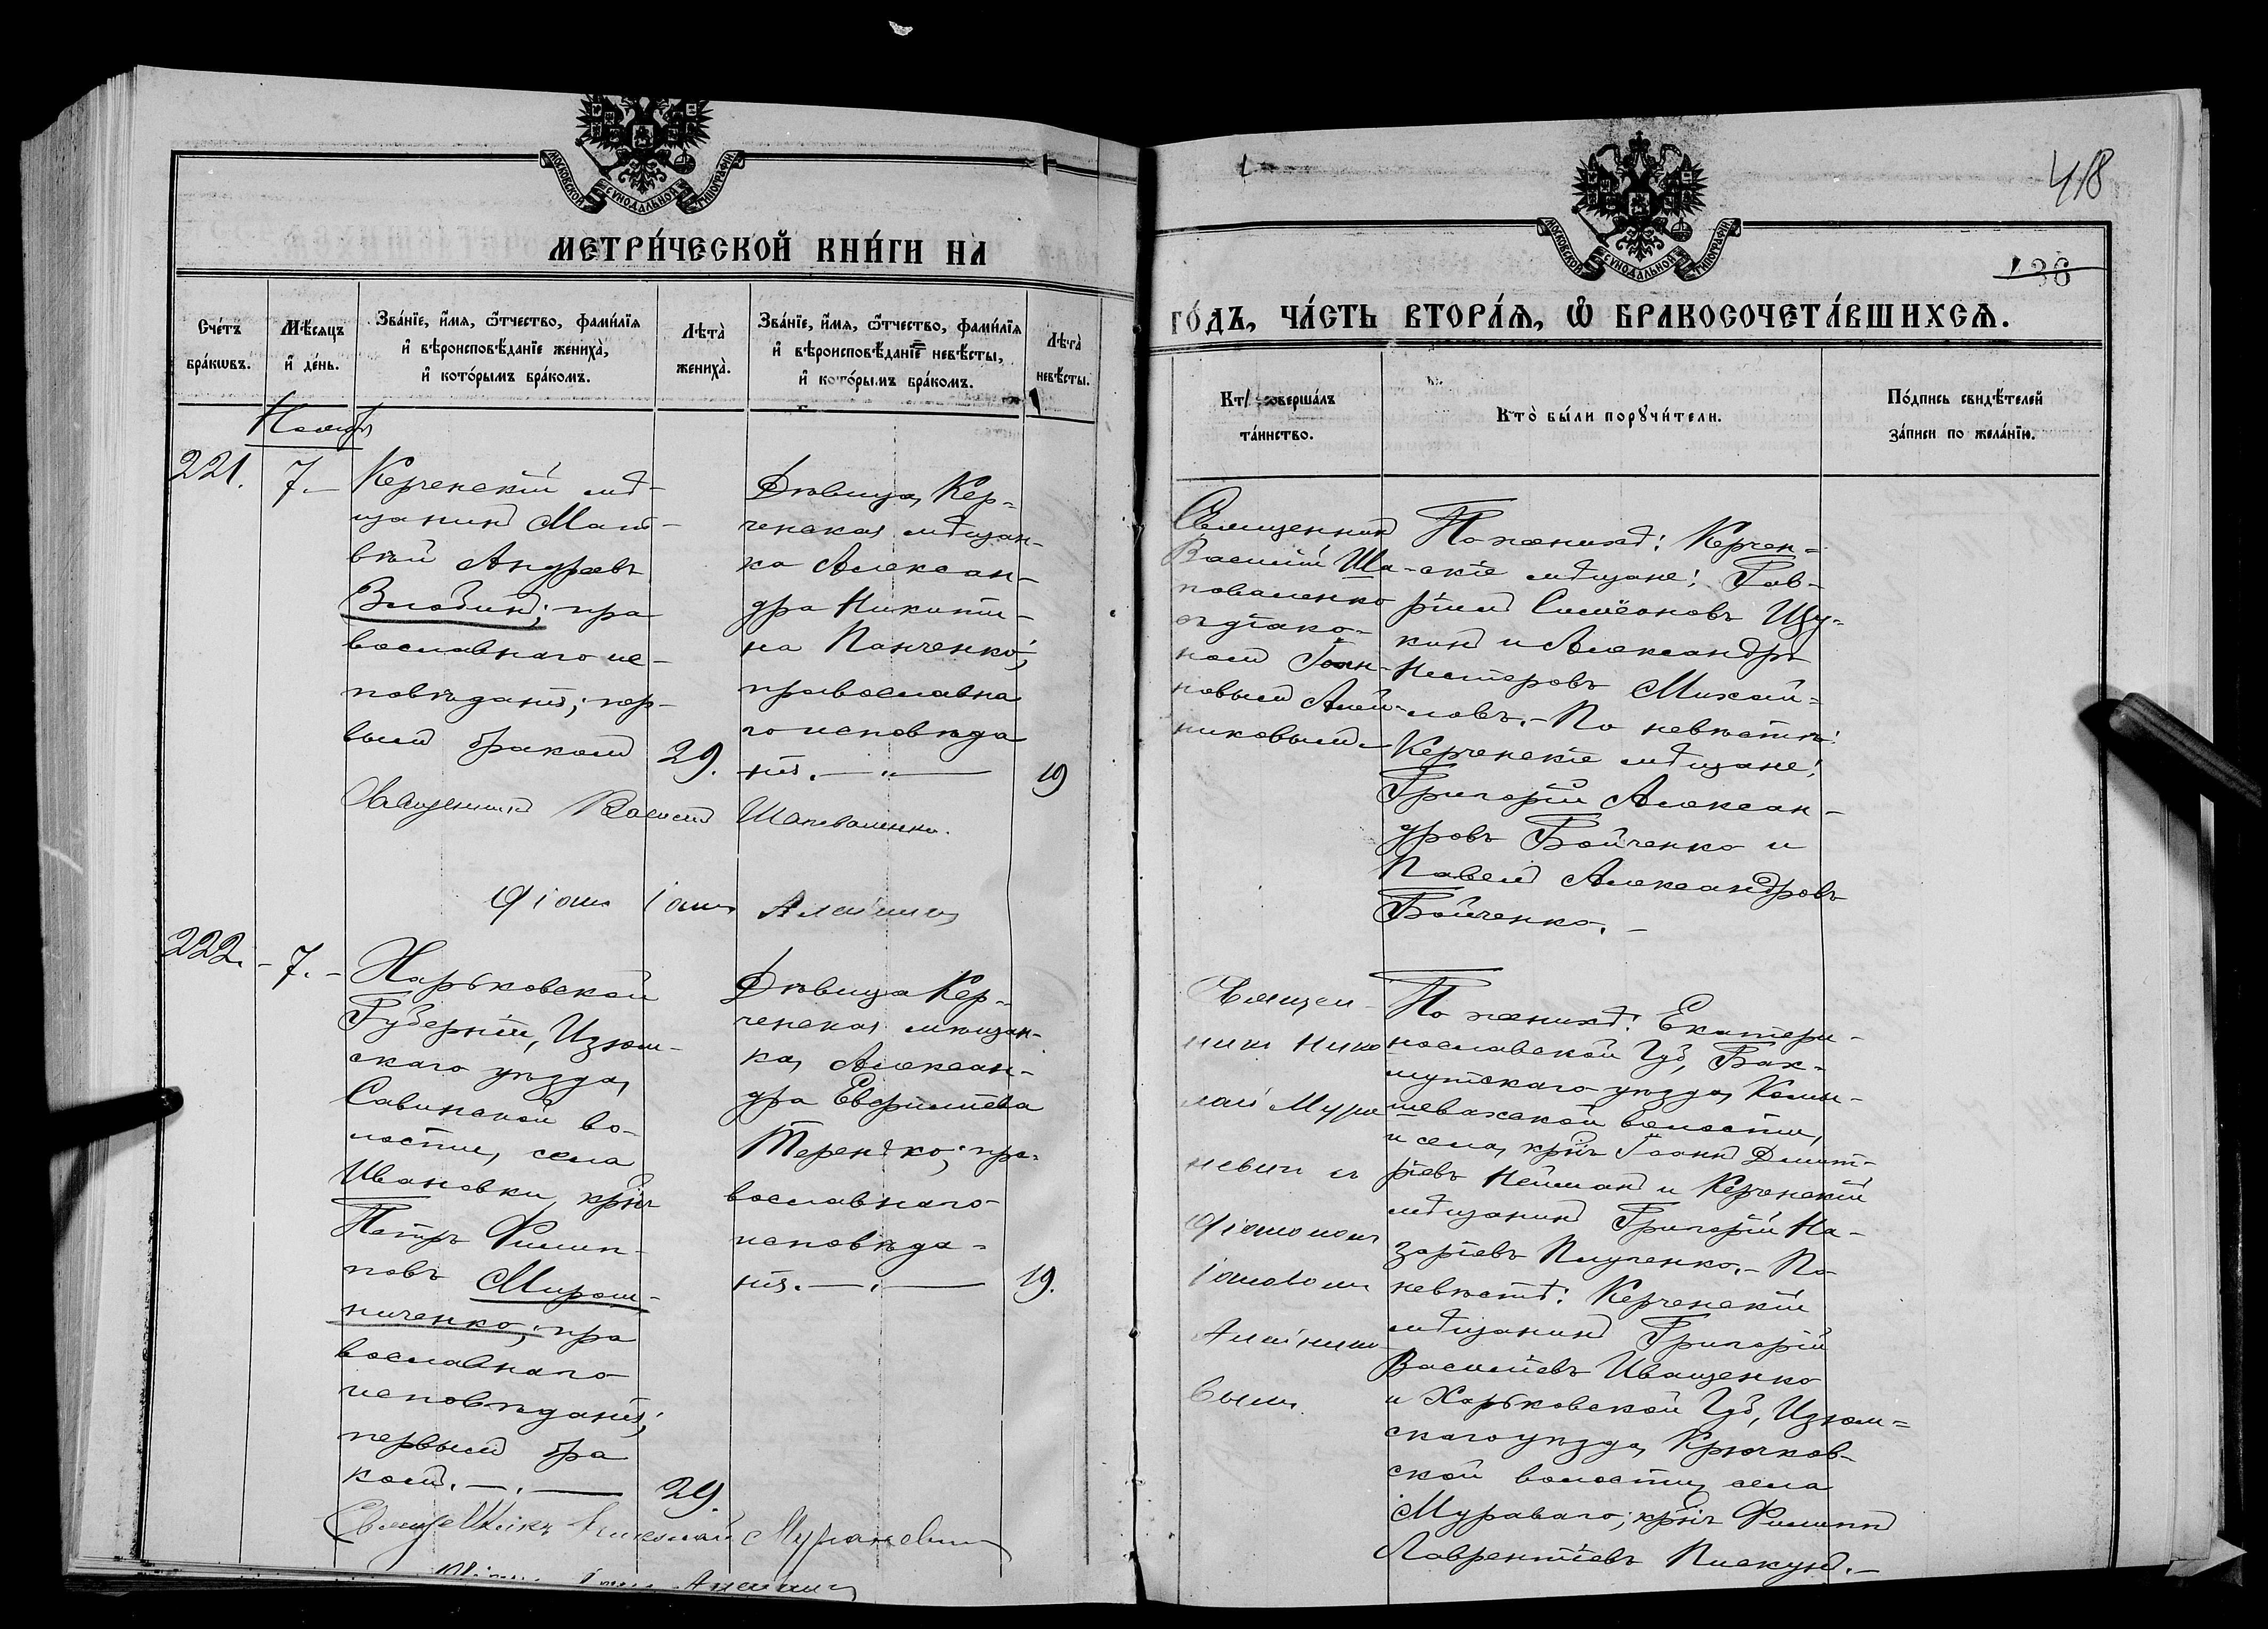 МОСКОВСКОЙ СѴНОДАЛЬНОЙ ТИПОГРАФІИ
МЕТРИ́ЧЕСКОЙ КНИ́ГИ НА
Сче́тъ бра́кѡвъ.
Мѣ́сяцъ и҆ де́нь.
Зва́нїе, и҆́мѧ, ѻ҆́тчество, фами́лїѧ
и҆ вѣроисповѣ́данїе жениха̀,
и҆ кото́рымъ бра́комъ.
Лѣта̀ жениха̀.
Зва́нїе, и҆́мѧ, ѻ҆́тчество, фами́лїѧ
и҆ вѣроисповѣ́данїе невѣ́сты,
и҆ кото́рымъ бра́комъ.
Лѣта̀ невѣ́сты.
Ноябрь
221.
7.—
Керченскій мѣ-
щанинъ Мат-
вѣй Андреевъ
Злобинъ; пра
вославнаго ис-
повѣданія; пер-
вымъ бракомъ
29.
Дѣвица, Кер-
ченская мѣщан-
ка Алексан-
дра Никити-
на Панченко;
православна
го исповѣда
нія.—"—
19
Священникъ Василій Шаповаленко.
Діак. Іоан. Алейник
222.-
7.-
Харьковской
Губерніи, Изюм-
скаго уѣзда,
Савинской во-
лости, села
Ивановки, кр-нъ
Петръ Филип-
повъ Мирош-
ниченко; пра
вославнаго
исповѣданія;
первымъ бра
комъ.—.—
29.
Дѣвица Кер-
ченская мѣщан-
ка, Алексан-
дра Евфиміева
Терентко; пра-
вославнаго
исповѣда-
нія.—.—
19.
Священникъ Николай Мураневич
Алейник
МОСКОВСКОЙ СѴНОДАЛЬНОЙ ТИПОГРАФІИ
418
136
ГО́ДЪ, ЧА́СТЬ ВТОРА́Ѧ, Ѽ БРАКОСОЧЕТА́ВШИХСѦ.
Кто̀ совершалъ
та́инство.
Кто̀ бы́ли порꙋчи́тели.
По́дпись свидѣ́телей
за́писи по жела́нїю.
Священникъ
Василій Ша-
поваленко
съ діако-
номъ Іоан-
новымъ Алей-
никовымъ
По женихѣ: Керчен=
скіе мѣщане: Гав-
ріилъ Симеоновъ Щу-
кинъ и Александръ
Несторовъ Михай-
ловъ.- По невѣстѣ:
Керченскіе мѣщане:
Григорій Алексан-
дровъ Бойченко и
Павелъ Александровъ
Бойченко.—
Священ-
никъ Нико
лай Мура
невич съ
Діакономъ
Іоановым
Алейнико
вымъ
По женихѣ: Екатери-
нославской Губ, Бах-
мутскаго уѣзда, Комы-
шевахской волости,
и села, кр-нъ Іоаннъ Дмит-
ріевъ Нейманъ и Керченскій
мѣщанинъ Григорій На-
заріевъ Плученко.- По
невѣстѣ: Керченскій
мѣщанинъ Григорій
Василіевъ Иващенко
и Харьковской Губ, Изюм=
скаго уѣзда, Крючков-
ской волости, села
Мураваго; кр-нъ Филиппъ
Лаврентіевъ Пискунъ.—